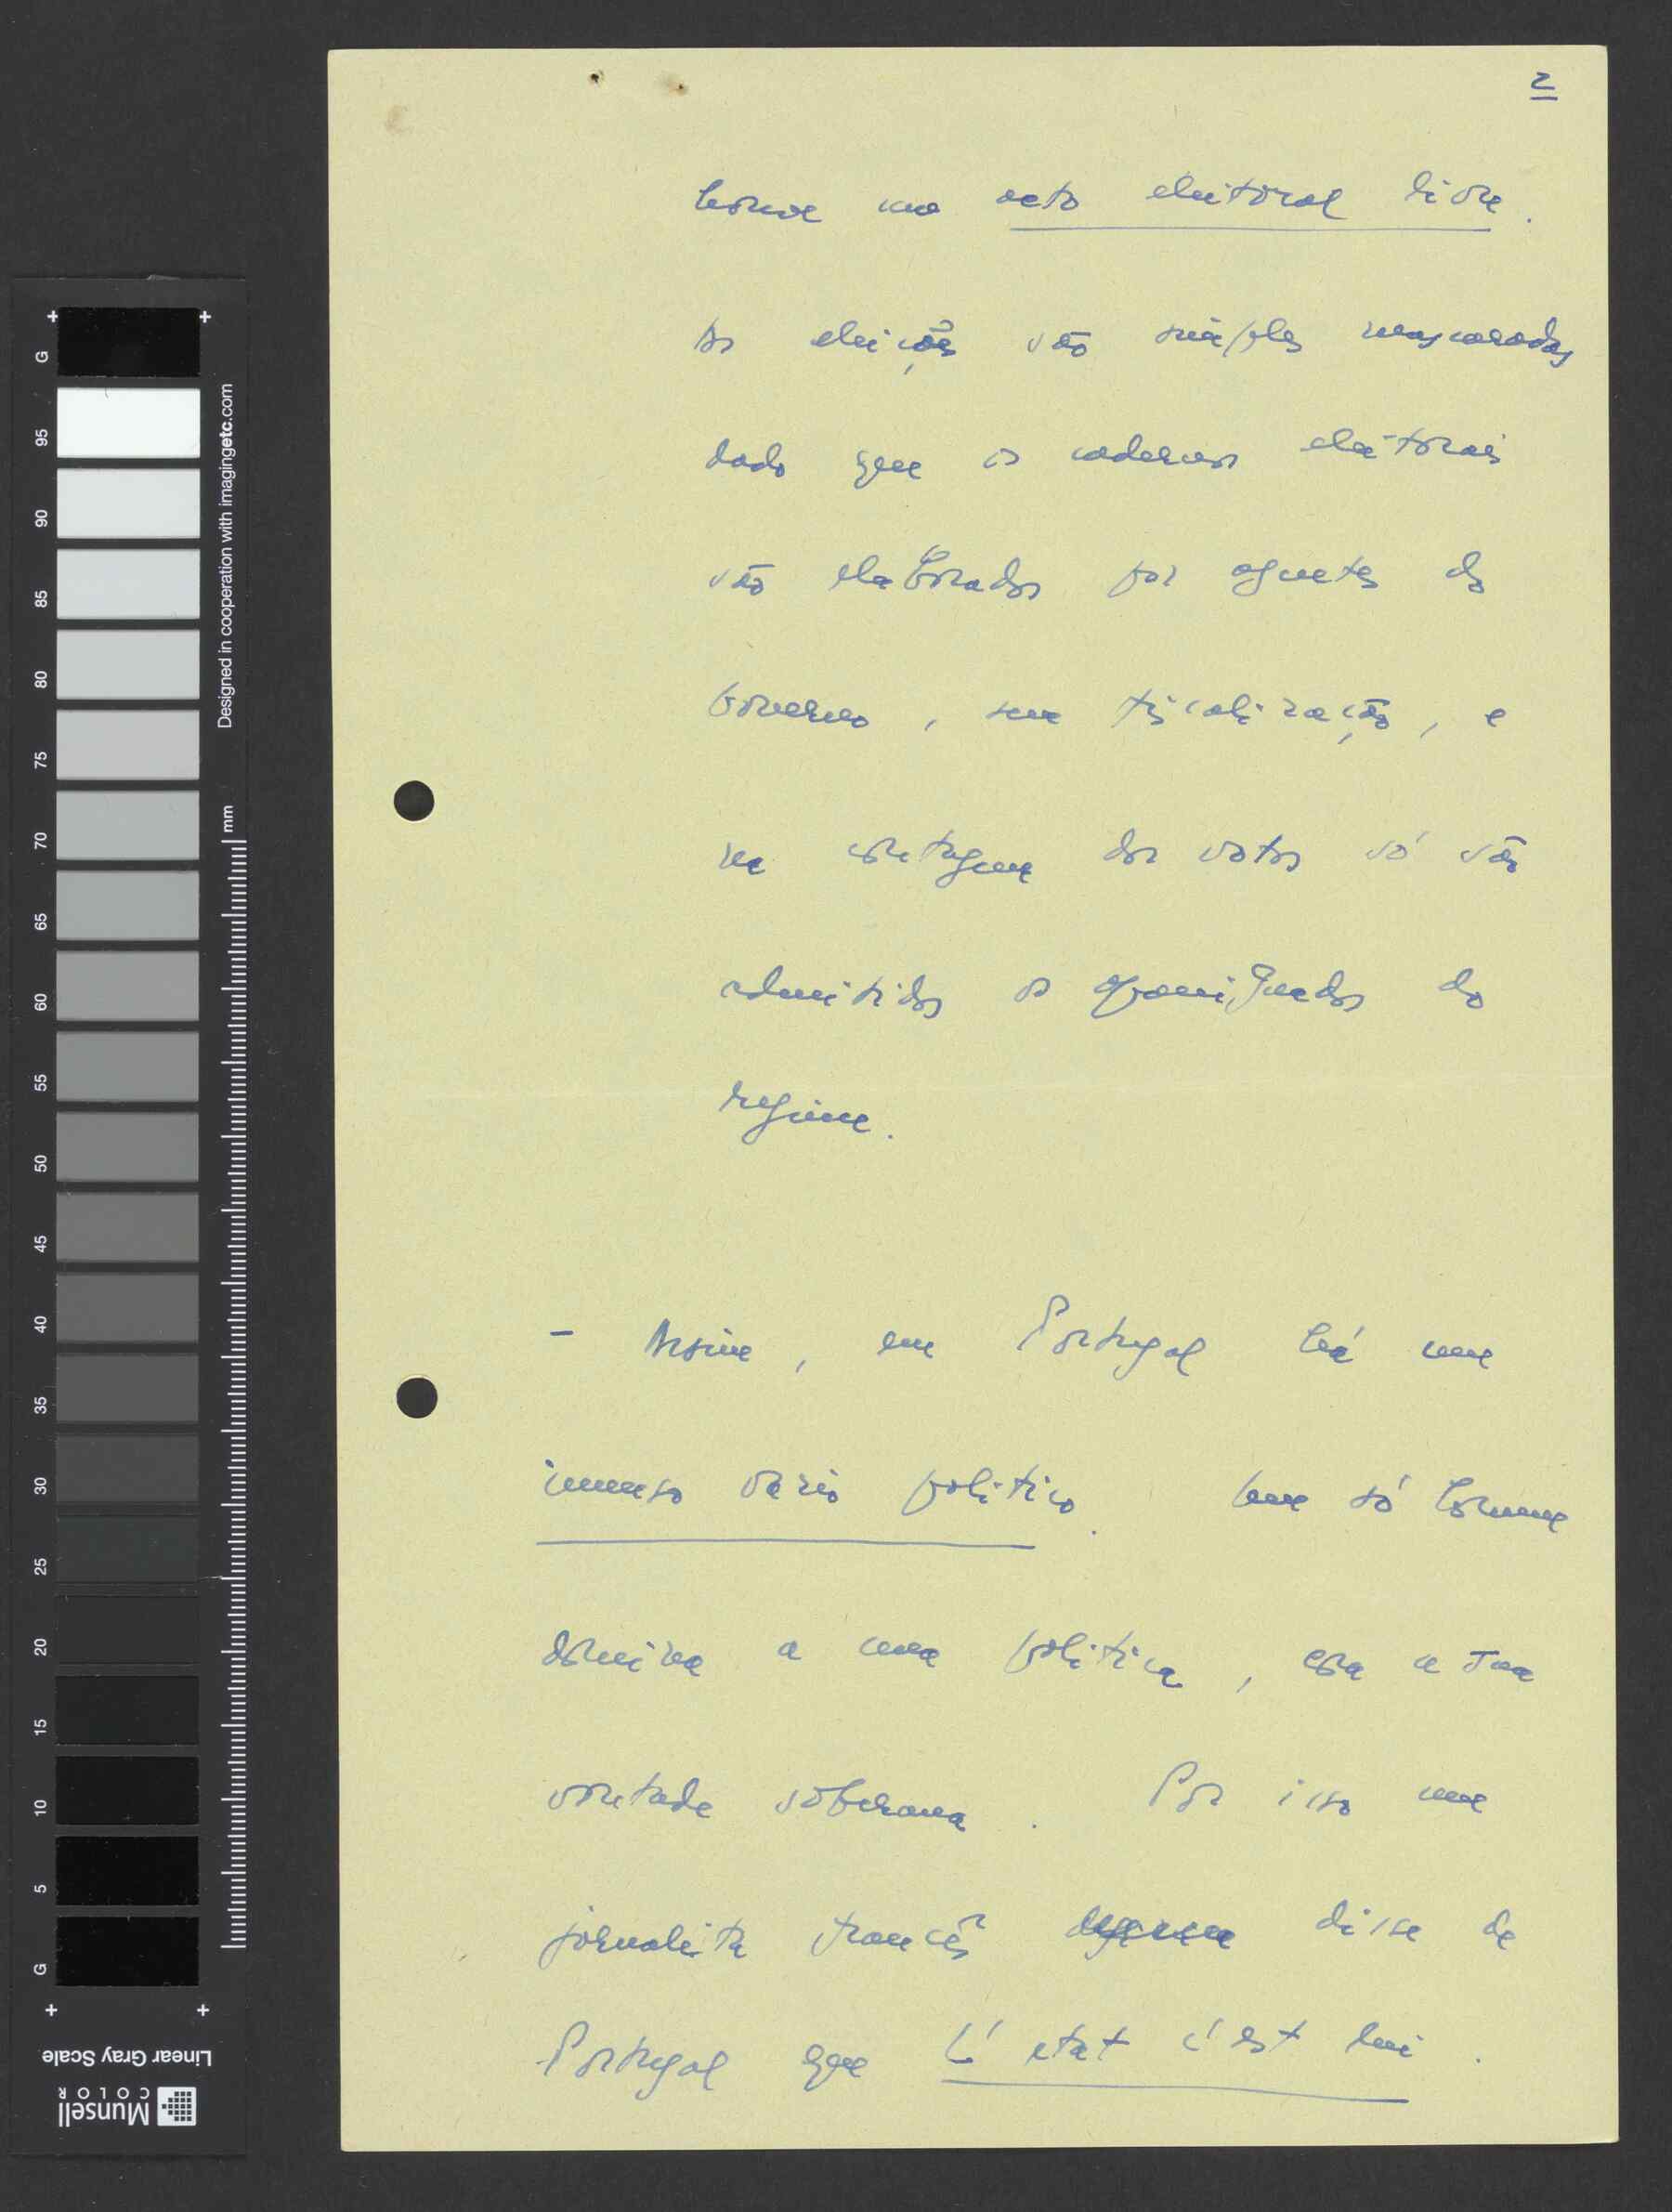 2
houve um acto eleitoral livre.
As eleições são simples mascaradas
dado que os cadernos eleitorais
são elaborados por agentes do
Governo, sem fiscalização, e
na contagem dos votos só são
admitidos os apaniguados do
regime.
- Assim, em Portugal há um
imenso vazio politico. Um só homem
domina a uma politica, era a sua
vontade soberana. Por isso um
jornalista francês disse de
Portugal que L'etat c'est lui.
Designed in cooperation with imagingetc.com
mm
G 95 90 85 80 75 70 65 60 55 50 45 40 35 30 25 20 15 10 5 G
Linear Gray Scale
Munsell
COLOR